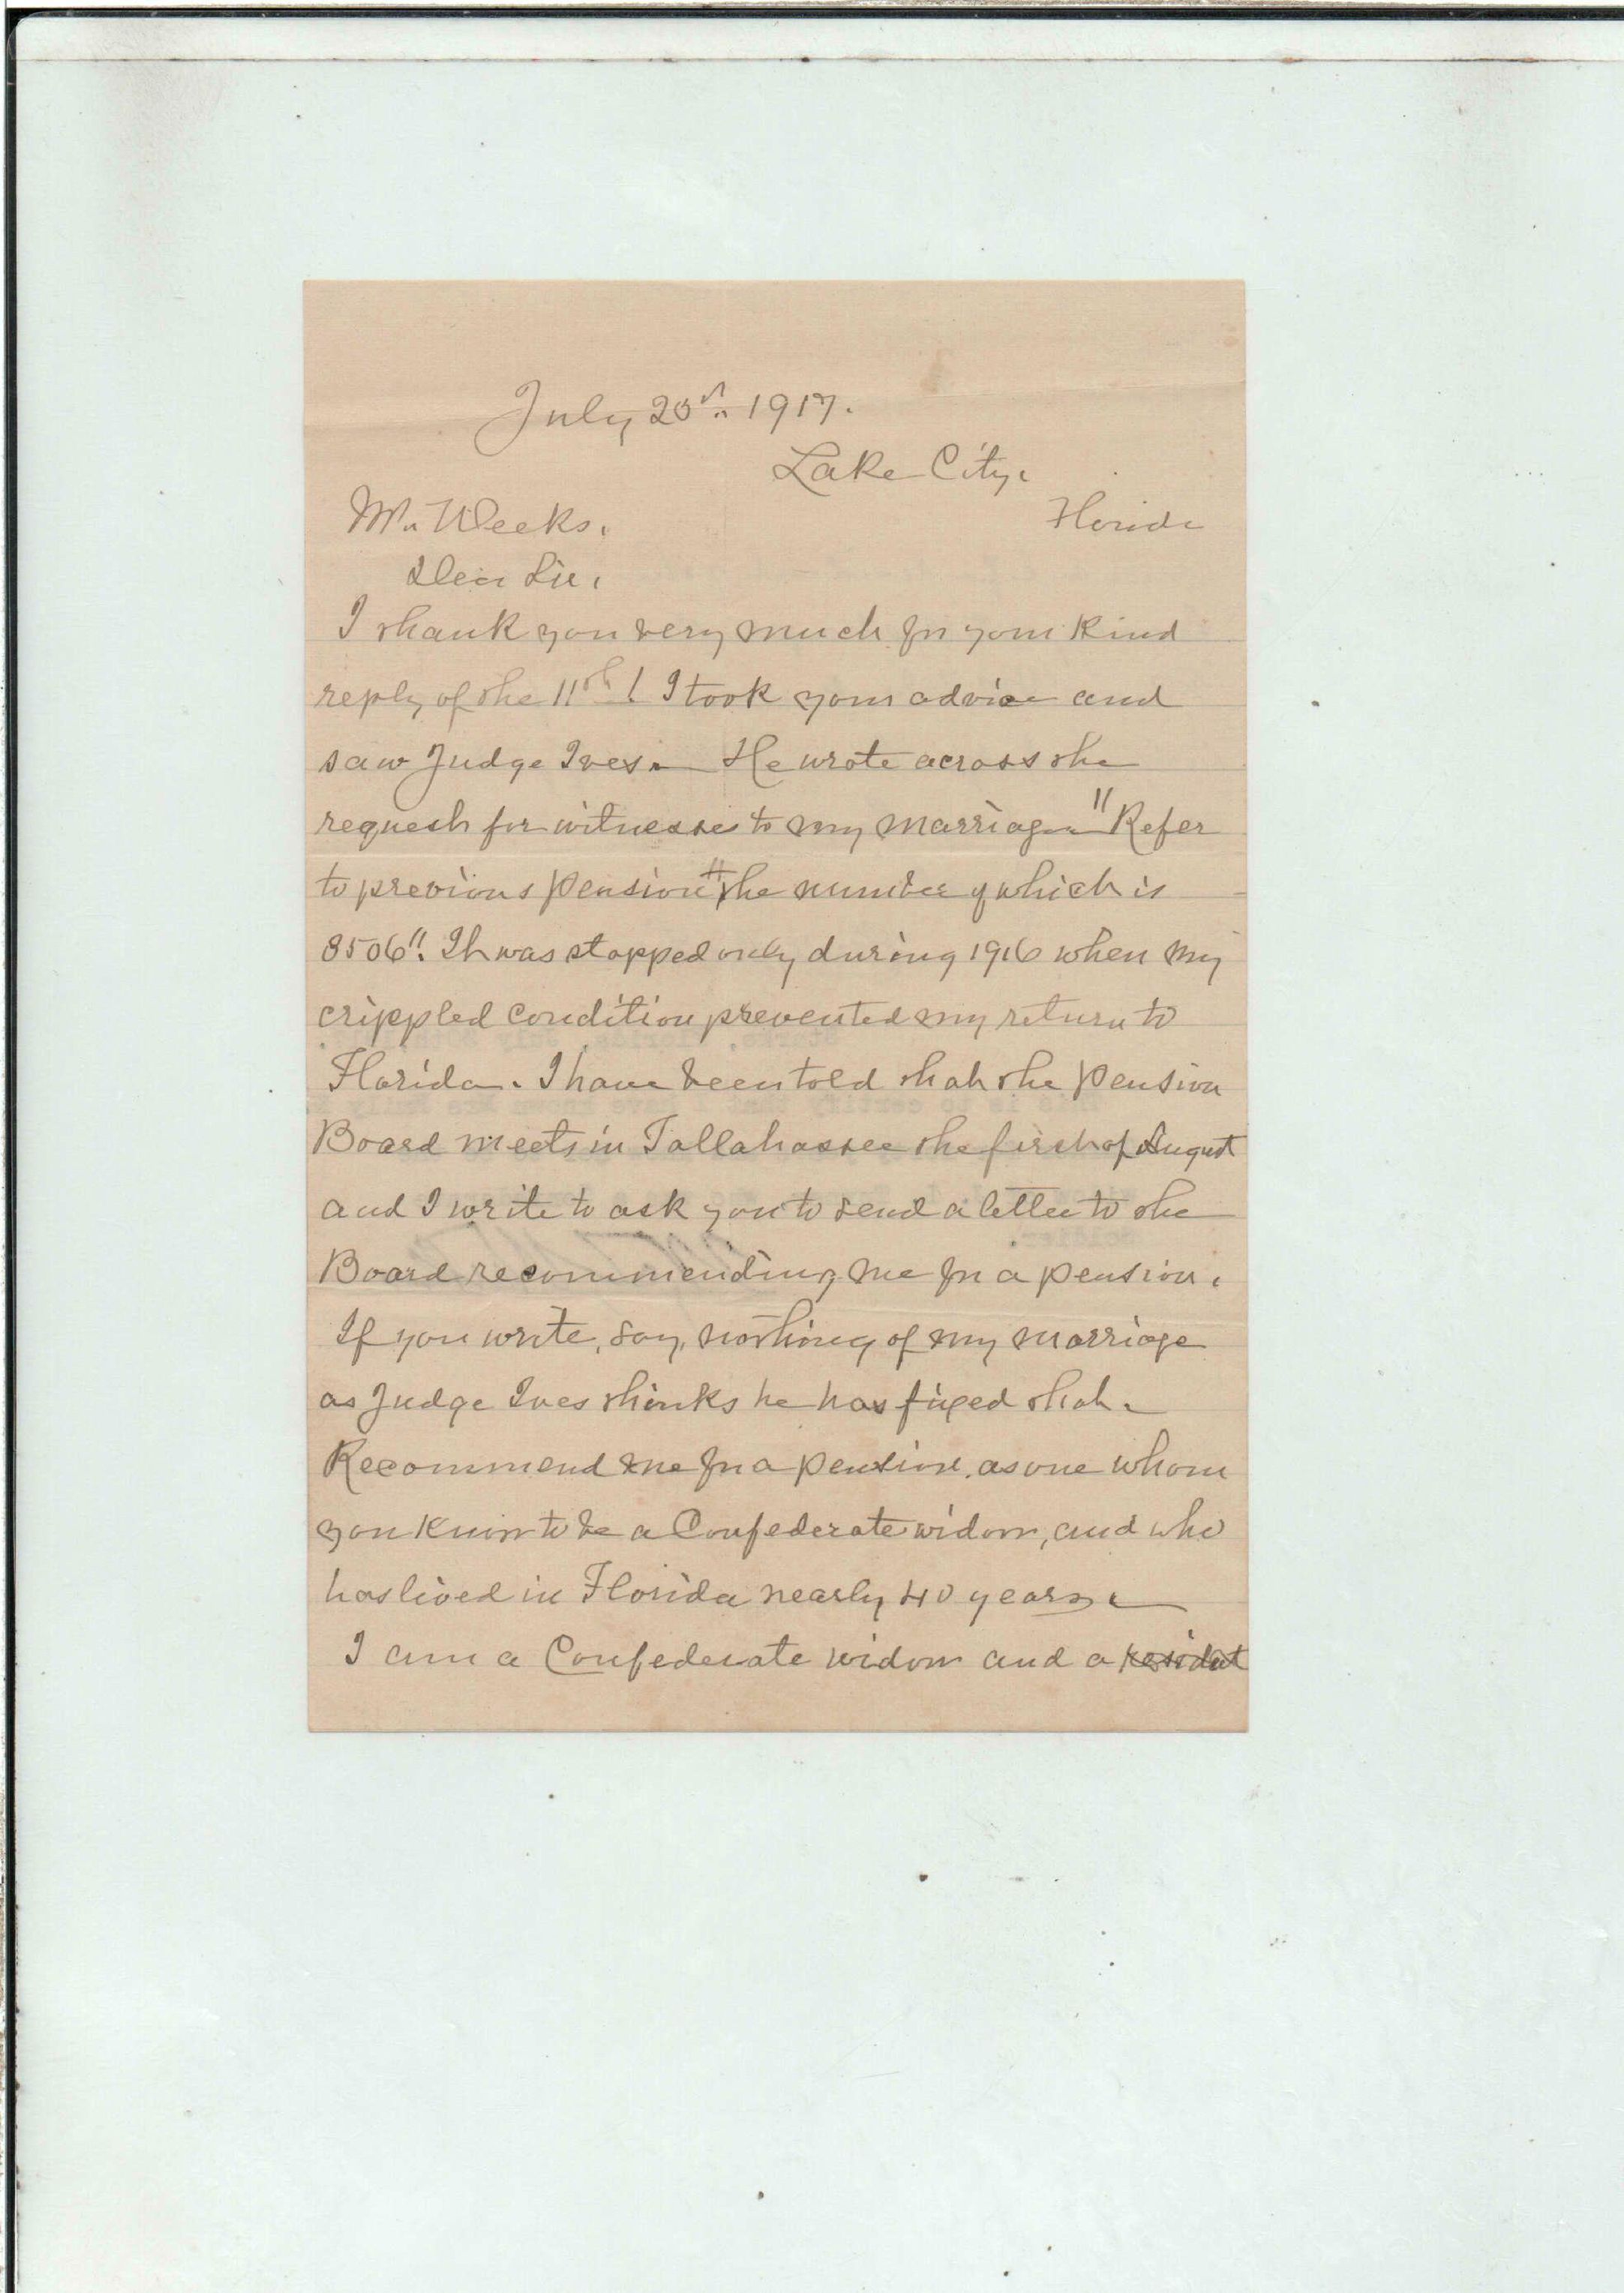 July 20th. 1917.
Lake City.
Mr. Weeks.
Florida
Dear Sir.
I thank you very much for your kind
reply of the 11th! I took your advice and
saw Judge Ives. He wrote across the
request for witnesses to my marriage. "Refer
to previous pension" the number of which is
8506". It was stopped only during 1916 when my
crippled condition prevented my return to
Florida. I have been told that the Pension
Board meets in Tallahassee the first of August
and I write to ask you to send a letter to the
Board recommending me for a pension.
If you write, say, nothing of my marriage
as Judge Ives thinks he has fixed that.
Recommend me for a pension. as one whom
you know to be a Confederate widow, and who
has lived in Florida nearly 40 years.
I am a Confederate widow and a resident